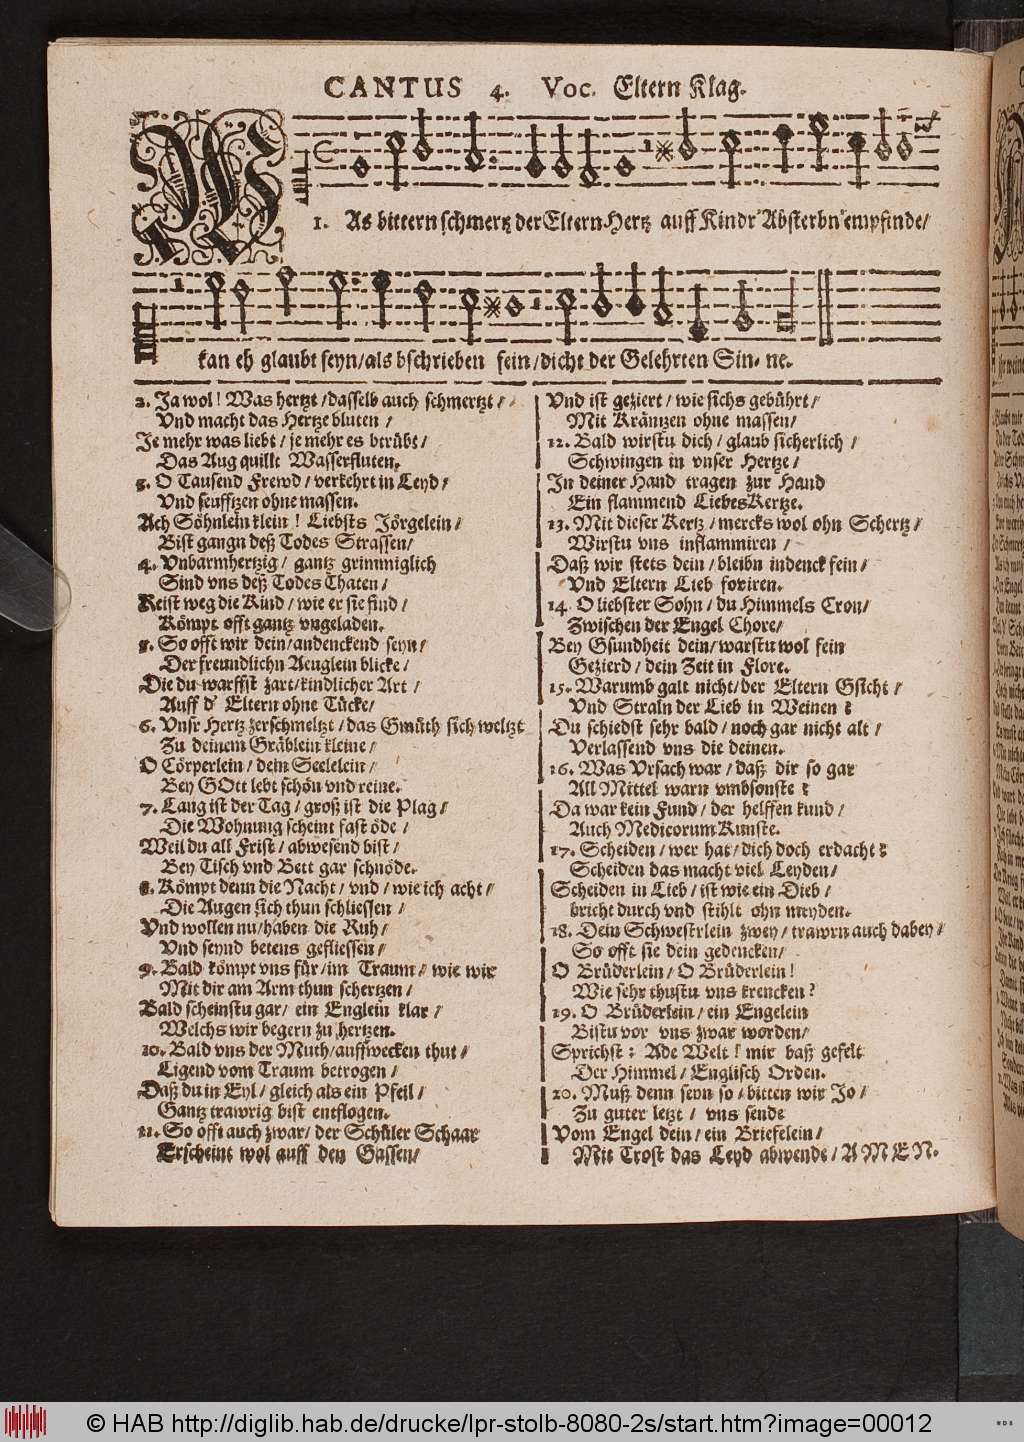 CANTUS 4. Voc. Eltern Klag.
WAs
1. As bittern schmertz der Eltern Hertz auff Kindr Absterbn empfinde/
kan eh glaubt seyn/als bschrieben fein/dicht der Gelehrten Sin- ne.
2. Ja wol! Was hertzt/dasselb auch schmertzt/
Vnd macht das Hertze bluten/
Je mehr was liebt/je mehr es btrübt/
Das Aug quillt Wasserfluten.
3. O Tausend Frewd/verkehrt in Leyd/
Vnd seufftzen ohne massen.
Ach Söhnlein klein! Liebsts Jörgelein/
Bist gangn deß Todes Strassen/
4. Vnbarmhertzig/gantz grimmiglich
Sind vns deß Todes Thaten/
Reist weg die Kind/wie er sie find/
Kömpt offt gantz vngeladen.
5. So offt wir dein/andenckend seyn/
Der freundlichn Aeuglein blicke/
Die du warffst zart/kindlicher Art/
Auff d' Eltern ohne Tücke/
6. Vnsr Hertz zerschmeltzt/das Gmüth sich weltzt
Zu deinem Gräblein kleine/
O Cörperlein/dein Seelelein/
Bey GOtt lebt schön vnd reine.
7. Lang ist der Tag/groß ist die Plag/
Die Wohnung scheint fast öde/
Weil du all Frist/abwesend bist/
Bey Tisch vnd Bett gar schnöde.
8. Kömpt denn die Nacht/vnd/wie ich acht/
Die Augen sich thun schliessen/
Vnd wollen nu/haben die Ruh/
Vnd seynd betens gefliessen/
9. Bald kömpt vns für/im Traum/wie wir
Mit dir am Arm thun schertzen/
Bald scheinstu gar/ein Englein klar/
Welchs wir begern zu hertzen.
10. Bald vns der Muth/auffwecken thut/
Ligend vom Traum betrogen/
Daß du in Eyl/gleich als ein Pfeil/
Gantz trawrig bist entflogen.
11. So offt auch zwar/der Schüler Schaar
Erscheint wol auff den Gassen/
Vnd ist geziert/wie sichs gebührt/
Mit Kräntzen ohne massen/
12. Bald wirstu dich/glaub sicherlich/
Schwingen in vnser Hertze/
In deiner Hand tragen zur Hand
Ein flammend LiebesKertze.
13. Mit dieser Kertz/mercks wol ohn Schertz/
Wirstu vns inflammiren/
Daß wir stets dein/bleibn indenck fein/
Vnd Eltern Lieb foviren.
14. O liebster Sohn/du Himmels Cron/
Zwischen der Engel Chore/
Bey Gsundheit dein/warstu wol fein
Gezierd/dein Zeit in Flore.
15. Warumb galt nicht/der Eltern Gsicht/
Vnd Straln der Lieb in Weinen?
Du schiedst sehr bald/noch gar nicht alt/
Verlassend vns die deinen.
16. Was Vrsach war/daß dir so gar
All Mittel warn vmbsonste?
Da war kein Fund/der helffen kund/
Auch Medicorum Kunste.
17. Scheiden/wer hat/dich doch erdacht?
Scheiden das macht viel Leyden/
Scheiden in Lieb/ist wie ein Dieb/
bricht durch vnd stihlt ohn meyden.
18. Dein Schwestrlein zwey/trawrn auch dabey/
So offt sie dein gedencken/
O Brüderlein/O Brüderlein!
Wie sehr thustu vns krencken?
19. O Brüderlein/ein Engelein
Bistu vor vns zwar worden/
Sprichst: Ade Welt! mir baß gefelt
Der Himmel/Englisch Orden.
20. Muß denn seyn so/bitten wir Jo/
Zu guter letzt/vns sende
Vom Engel dein/ein Briefelein/
Mit Trost das Leyd abwende/AMEN.
© HAB http://diglib.hab.de/drucke/lpr-stolb-8080-2s/start.htm?image=00012